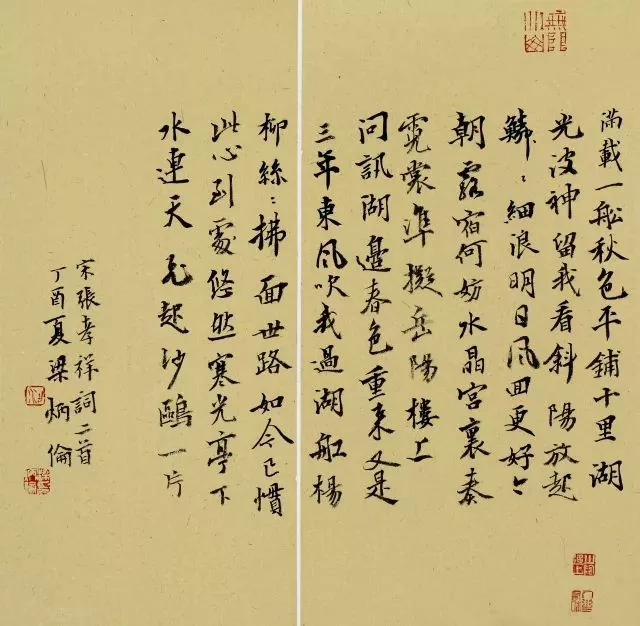 滿載一舩秋色平鋪十里湖
光波神留我看斜陽放起
鱗〻細浪明日风回更好今
朝露宿何妨水晶宮裏奏
霓裳準擬岳陽樓上
問訊湖邊春色重来又是
三年東风吹我過湖舩楊
柳絲〻拂面世路如今已慣
此心到處悠然寒光亭下
水連天飛起沙鷗一片
宋張孝祥詞二首
丁酉夏梁炳倫